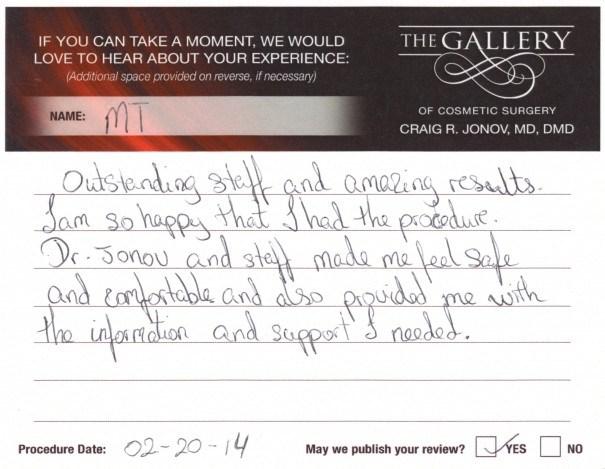 IF YOU CAN TAKE A MOMENT, WE WOULD
LOVE TO HEAR ABOUT YOUR EXPERIENCE:
(Additional space provided on reverse, if necessary)
NAME: MT
THE GALLERY
OF COSMETIC SURGERY
CRAIG R. JONOV, MD, DMD
Outstanding staff and amazing results.
I am so happy that I had the procedure.
Dr. Jonov and staff made me feel safe
and comfortable and also provided me with
the information and support I needed.
Procedure Date: 02-20-14 May we publish your review? YES NO